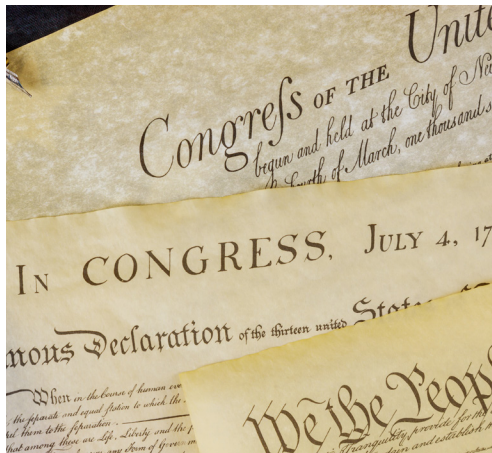 Congreſs OF THE Unite
begun and held at the City of Ne
fourth of March, one thousand s
In CONGRESS, July 4, 17
mous Declaration of the thirteen united States
When in the Course of human eve
the ſeparate and equal ſtation to which the
them to the ſeparation.
that among these are Life, Liberty, and the p
any Form of Governm
We the Peopl
Tranquility, provide for the
and establish